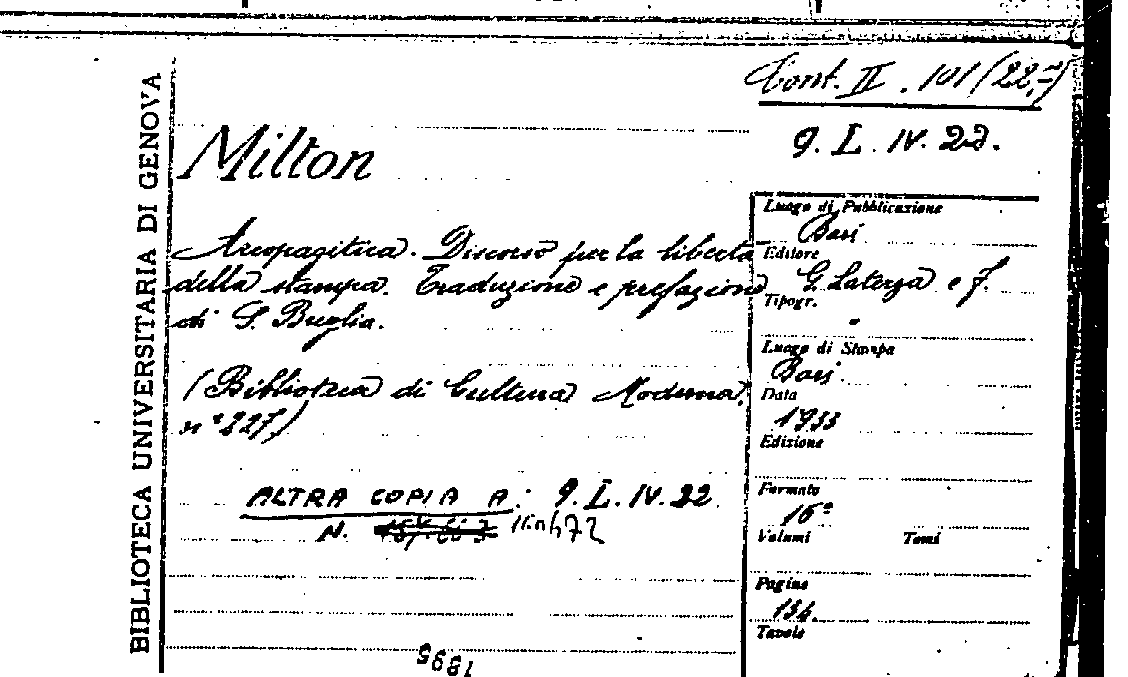 BIBLIOTECA UNIVERSITARIA DI GENOVA
Cont. II. 101 (22,-)
9. L. IV. 22.
Milton
Areopagitica. Discorso per la libertà
della stampa. Traduzione e prefazione
di S. Breglia.
(Biblioteca di Cultura Moderna.
n° 227)
ALTRA COPIA A: 9. L. IV. 22
N.
1895
Luogo di Pubblicazione
Bari
Editore
G. Laterza e f.
Tipogr.
Luogo di Stampa
Bari.
Data
1933
Edizione
Formato
16°
Volumi Tomi
Pagine
134.
Tavole